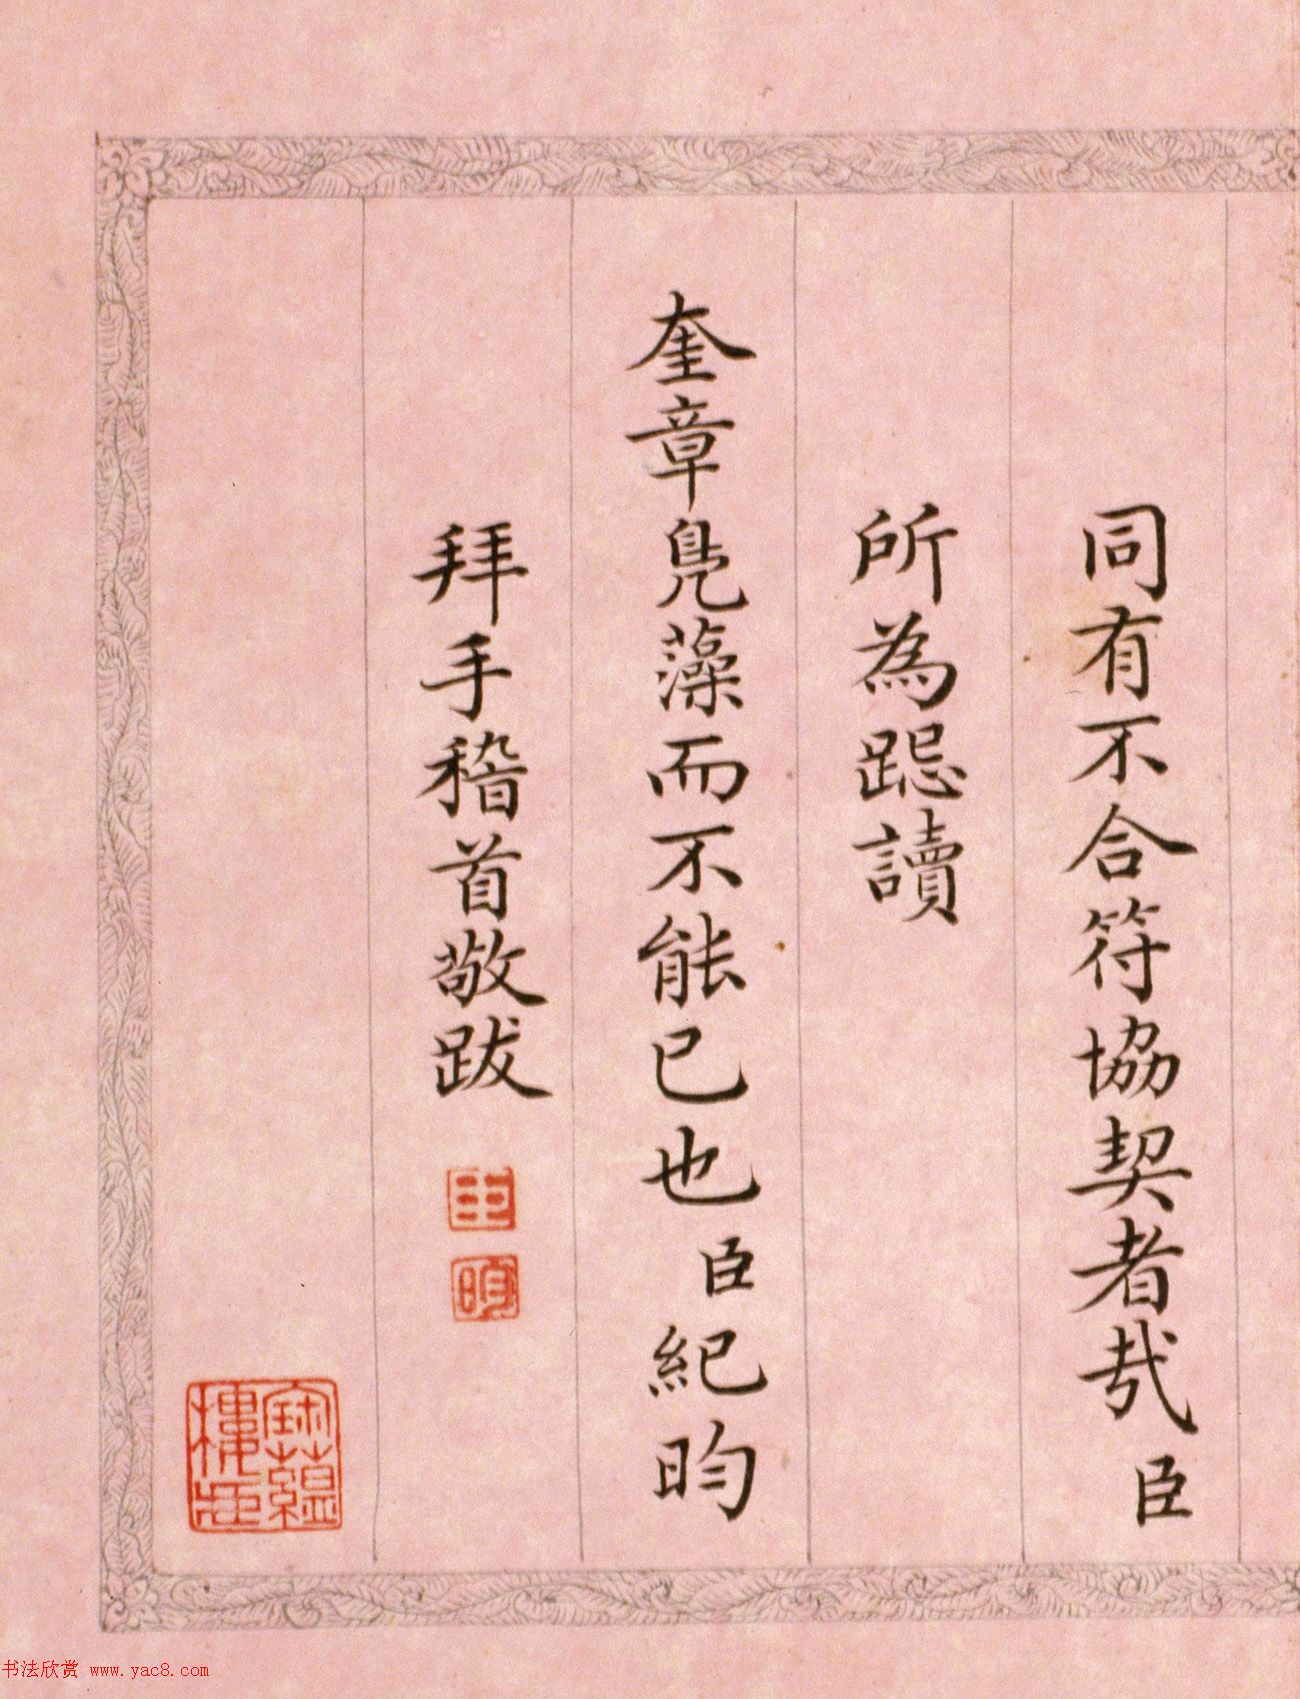 同有不合符協契者哉臣
所為跽讀
奎章鳧藻而不能已也臣紀昀
拜手稽首敬跋
臣
昀
寶蘊樓藏
书法欣赏 www.yac8.com